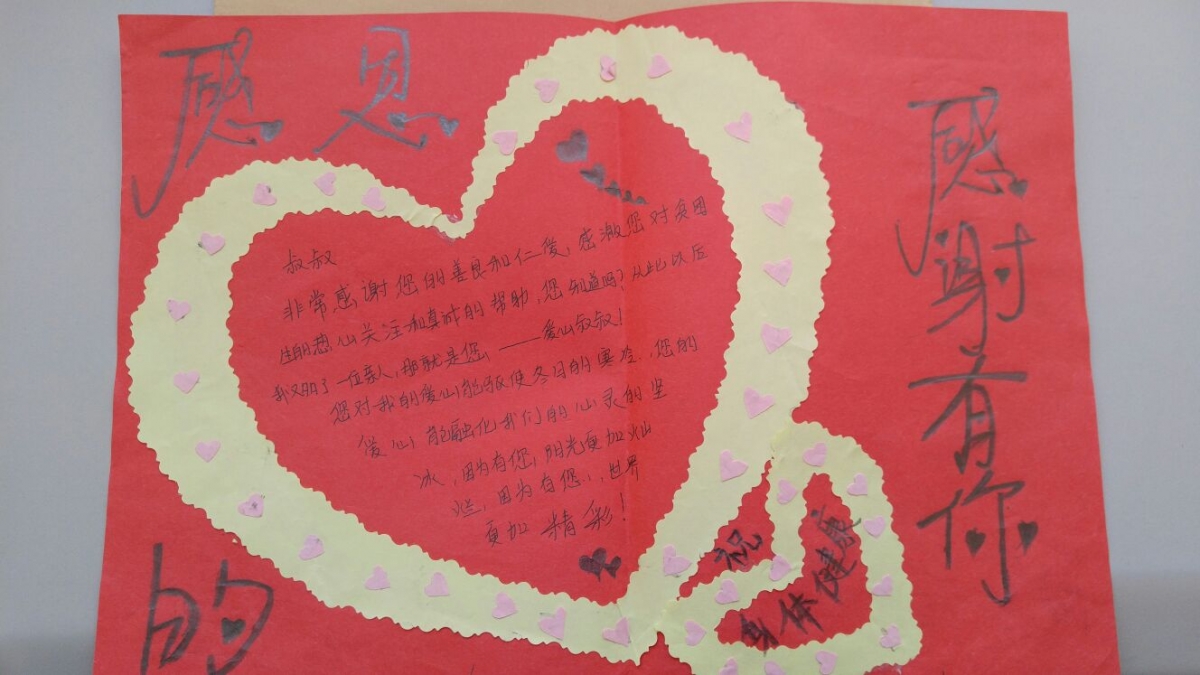 感恩
的
叔叔
非常感谢您的善良和仁爱，感激您对贫困
生的热心关注和真诚的帮助，您知道吗？从此以后
我又多了一位亲人，那就是您，——爱心叔叔！
您对我的爱心能驱使冬日的寒冷，您的
爱心能融化我们的心灵的坚
冰，因为有您，阳光更加灿
烂，因为有您，世界
更加精彩！
祝
身体健康
感谢有你